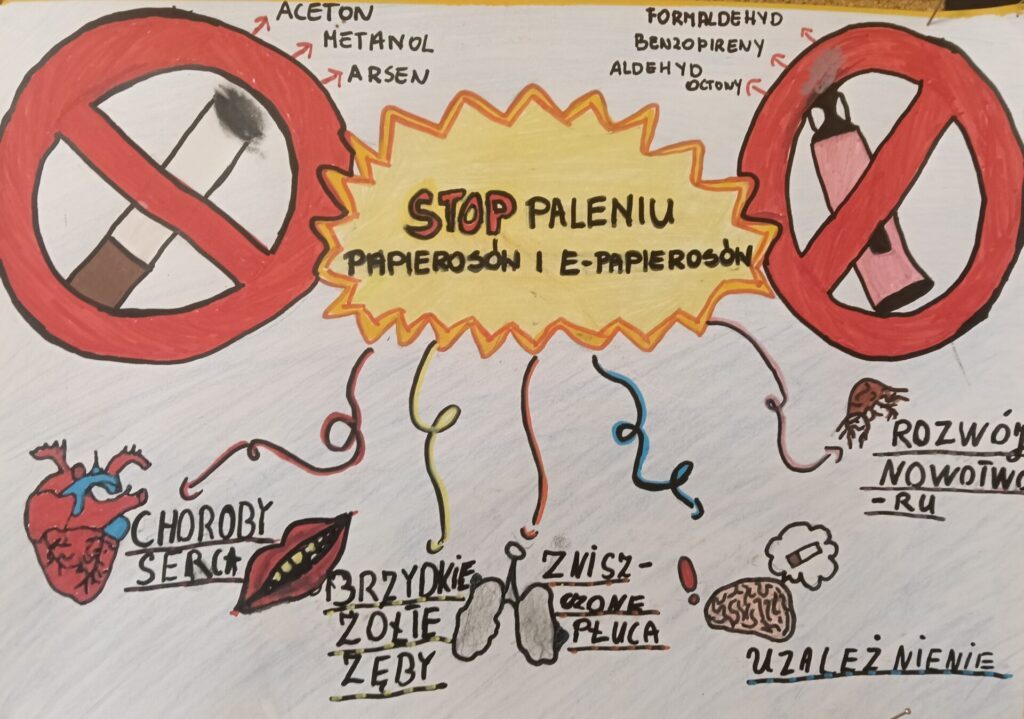 ACETON
METANOL
ARSEN
FORMALDEHYD
BENZOPIRENY
ALDEHYD
OCTOWY
STOP PALENIU
PAPIEROSÓW I E-PAPIEROSÓW
CHOROBY
SERCA
BRZYDKIE
ŻÓŁTE
ZĘBY
ZNISZ-
CZONE
PŁUCA
UZALEŻNIENIE
ROZWÓJ
NOWOTWO
-RU